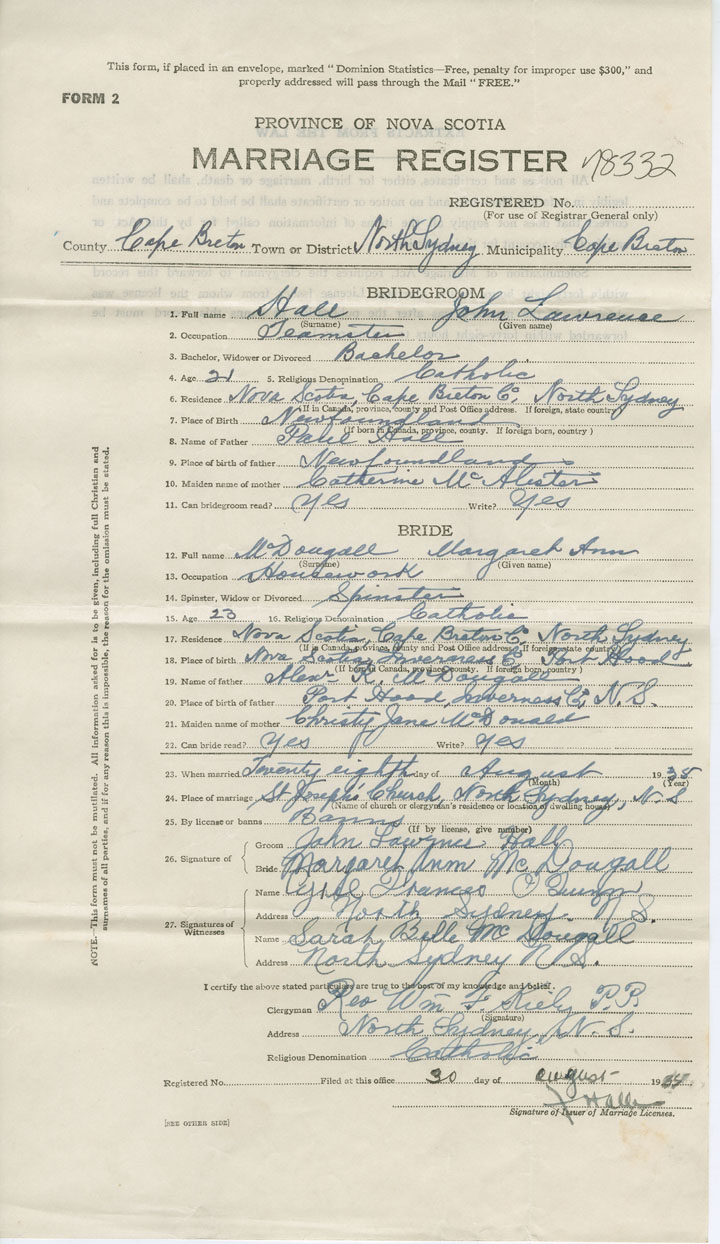 This form, if placed in an envelope, marked "Dominion Statistics—Free, penalty for improper use $300," and
properly addressed will pass through the Mail "FREE."
FORM 2
PROVINCE OF NOVA SCOTIA
MARRIAGE REGISTER 78332
REGISTERED No.
(For use of Registrar General only)
County Cape Breton Town or District North Sydney Municipality Cape Breton
BRIDEGROOM
1. Full name Hall John Lawrence
(Surname) (Given name)
2. Occupation Teamster
3. Bachelor, Widower or Divorced Bachelor
4. Age 21 5. Religious Denomination Catholic
6. Residence Nova Scotia, Cape Breton C. North Sydney
(If in Canada, province, county and Post Office address. If foreign, state country)
7. Place of Birth Newfoundland
(If born in Canada, province, county. If foreign born, country)
8. Name of Father Hall
9. Place of birth of father Newfoundland
10. Maiden name of mother Catherine McAlister
11. Can bridegroom read? Yes Write? Yes
BRIDE
12. Full name McDougall Margaret Ann
(Surname) (Given name)
13. Occupation Housework
14. Spinster, Widow or Divorced Spinster
15. Age 23 16. Religious Denomination Catholic
17. Residence Nova Scotia, Cape Breton C. North Sydney
(If in Canada, province, county and Post Office address. If foreign state country)
18. Place of birth Nova Scotia, Inverness C. Port Hood
(If born in Canada, province, county. If foreign born, country)
19. Name of father Alexr R. McDougall
20. Place of birth of father Port Hood, Inverness C, N.S.
21. Maiden name of mother Christy Jane McDonald
22. Can bride read? Yes Write? Yes
23. When married Twenty eighth day of August 19
(Month) (Year)
24. Place of marriage St Joseph's Church, North Sydney, N.S
(Name of church or clergyman's residence or location of dwelling house)
25. By license or banns Banns
(If by license, give number)
26. Signature of
Groom John Lawrence Hall
Bride Margaret Ann McDougall
27. Signatures of Witnesses
Name Frances
Address North Sydney. N.S.
Name Sarah Belle McDougall
Address North Sydney N.S.
I certify the above stated particulars are true to the best of my knowledge and belief.
Clergyman Rev Wm F. Kiely P.P.
(Signature)
Address North Sydney, N.S.
Religious Denomination Catholic
Registered No. Filed at this office 30 day of August 19
Signature of Issuer of Marriage Licenses.
[SEE OTHER SIDE]
NOTE.—This form must not be mutilated. All information asked for is to be given, including full Christian and
surnames of all parties, and if for any reason this is impossible, the reason for the omission must be stated.